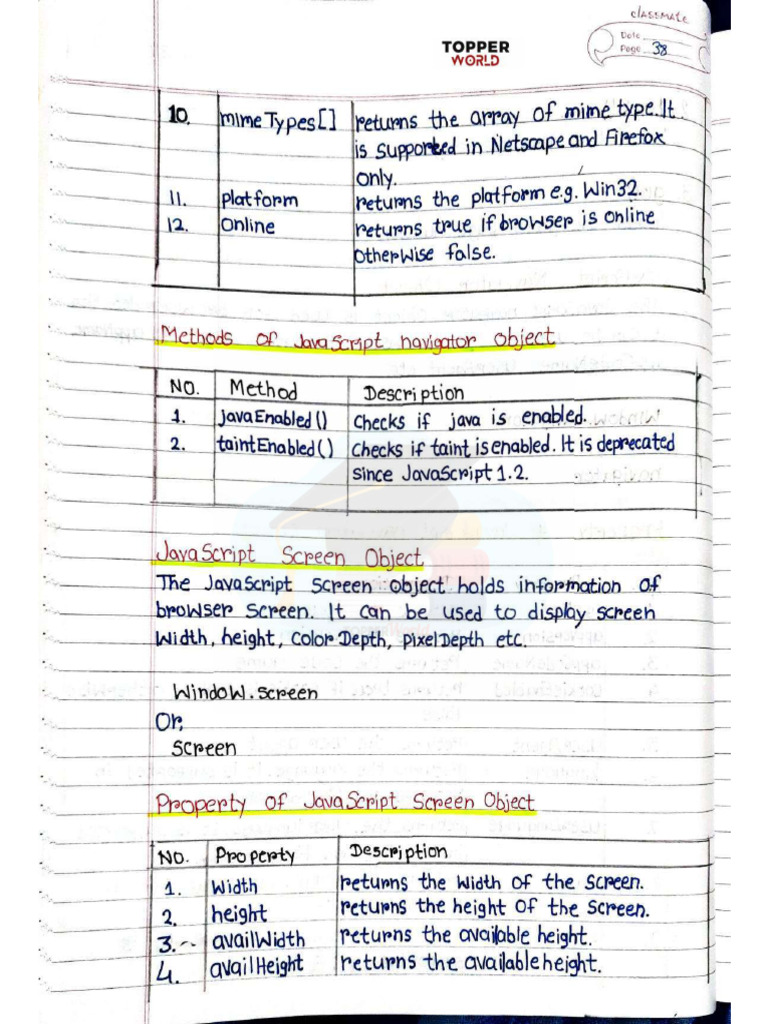 classmate
Date
Page 38
TOPPER
WORLD
10. mimeTypes[] returns the array of mime type. It
is supported in Netscape and Firefox
only.
11. platform returns the platform e.g. Win32.
12. Online returns true if browser is online
otherwise false.
Methods of JavaScript navigator object
NO. Method Description
1. javaEnabled() checks if java is enabled.
2. taintEnabled() checks if taint is enabled. It is deprecated
since JavaScript 1.2.
JavaScript Screen Object
The JavaScript screen object holds information of
browser screen. It can be used to display screen
width, height, colorDepth, pixelDepth etc.
Window.screen
Or,
screen
Property of JavaScript Screen Object
No. Property Description
1. width returns the width of the screen.
2. height returns the height of the screen.
3. availWidth returns the available height.
4. availHeight returns the available height.